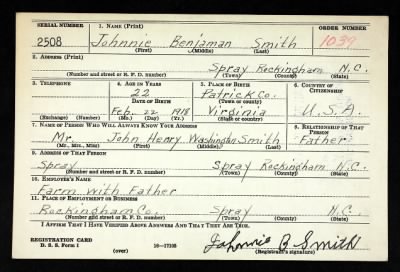 SERIAL NUMBER 1. NAME (Print) ORDER NUMBER
2508 Johnnie Benjaman Smith 1039
(First) (Middle) (Last)
2. ADDRESS (Print)
Spray Rockingham N.C.
(Number and street or R. F. D. number) (Town) (County) (State)
3. TELEPHONE 4. AGE IN YEARS 5. PLACE OF BIRTH 6. COUNTRY OF CITIZENSHIP
22 Patrick Co.
DATE OF BIRTH (Town or county)
Feb. 22 1918 Virginia U.S.A.
(Mo.) (Day) (Yr.) (State or country)
7. NAME OF PERSON WHO WILL ALWAYS KNOW YOUR ADDRESS 8. RELATIONSHIP OF THAT PERSON
Mr. John Henry Washington Smith Father
(Mr., Mrs., Miss) (First) (Middle) (Last)
9. ADDRESS OF THAT PERSON
Spray Spray Rockingham N.C.
(Number and street or R. F. D. number) (Town) (County) (State)
10. EMPLOYER'S NAME
Farm with Father
11. PLACE OF EMPLOYMENT OR BUSINESS
Rockingham Co. Spray N.C.
(Number and street or R. F. D. number) (Town) (County) (State)
I AFFIRM THAT I HAVE VERIFIED ABOVE ANSWERS AND THAT THEY ARE TRUE.
REGISTRATION CARD
D. S. S. Form 1 (over) 16-17105 Johnnie B Smith
(Registrant's signature)